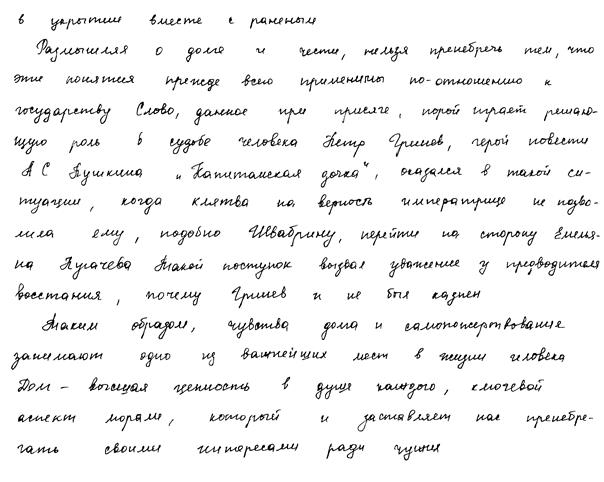 в укрытии вместе с раненым
Размышляя о долге и чести, нельзя пренебречь тем, что
эти понятия прежде всего применимы по-отношению к
государству Слово, данное при присяге, порой играет решаю-
щую роль в судьбе человека Петр Гринев, герой повести
А С Пушкина „Капитанская дочка", оказался в такой си-
туации, когда клятва на верность императрице не позво-
лила ему, подобно Швабрину, перейти на сторону Емелья-
на Пугачева Такой поступок вызвал уважение у предводителя
восстания, почему Гринев и не был казнен
Таким образом, чувства долга и самопожертвование
занимают одно из важнейших мест в жизни человека
Долг – высшая ценность в душе каждого, ключевой
аспект морали, который и заставляет нас пренебре-
гать своими интересами ради чужих